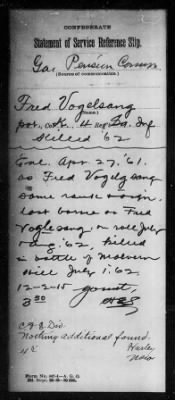 CONFEDERATE
Statement of Service Reference Slip.
Ga. Pension Comm
(Source of communication.)
Fred Vogelsang
(Name.)
pvt, Co. K, 4 Reg Ga. Inf
Killed '62
Enl. Apr. 27, '61.
as Fred Vogelgsang
same rank & orgn.
last borne as Fred
Voglesang, on roll July
Aug. '62, killed
in battle of Malvern
Hill July 1, '62.
12-2-15
350
C. & R Div.
Nothing additional found.
Form No. 447-1—A. G. O.